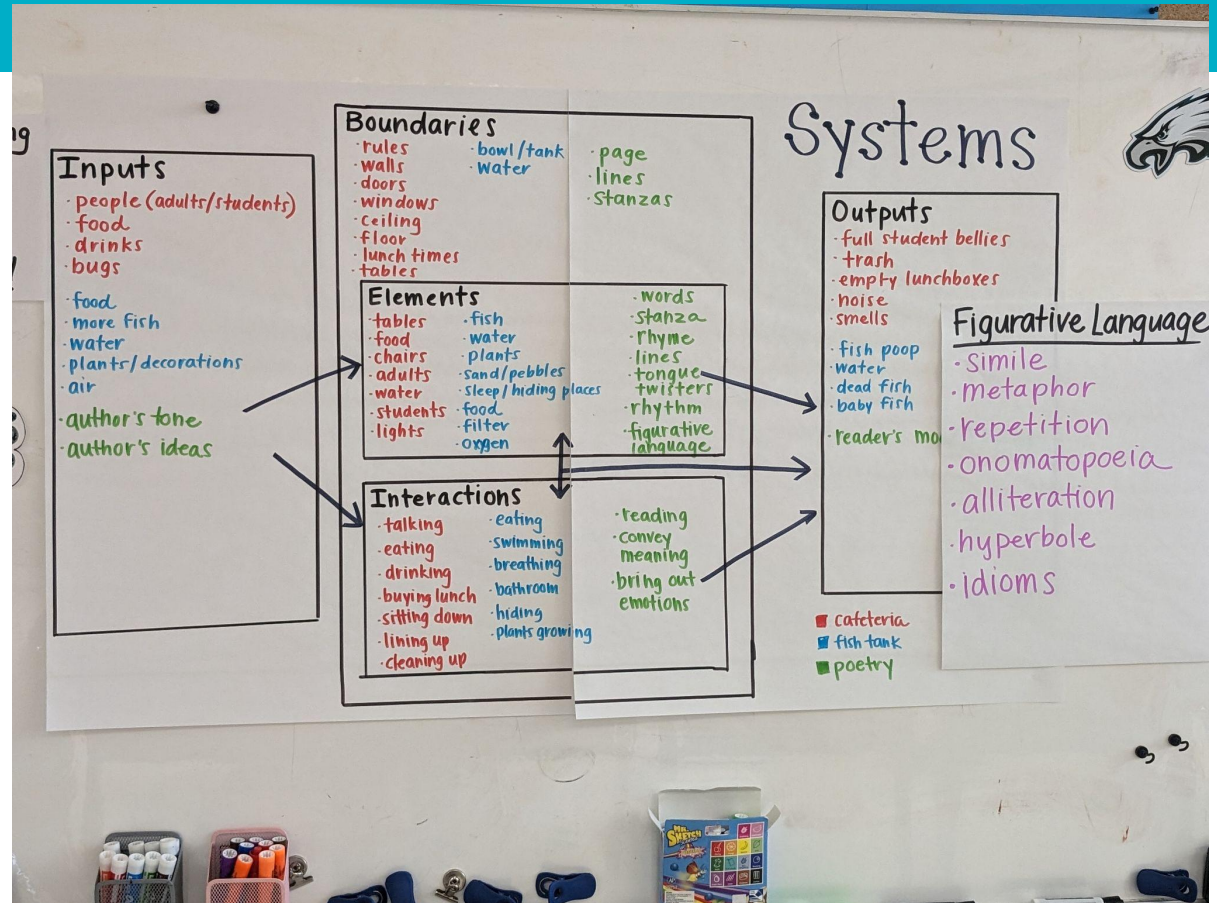 Systems
Inputs
· people (adults/students)
· food
· drinks
· bugs
· food
· more fish
· water
· plants/decorations
· air
· author's tone
· author's ideas
Boundaries
· rules
· walls
· doors
· windows
· ceiling
· floor
· lunch times
· tables
· bowl/tank
· water
· page
· lines
· stanzas
Elements
· tables
· food
· chairs
· adults
· water
· students
· lights
· fish
· water
· plants
· sand/pebbles
· sleep/hiding places
· food
· filter
· oxygen
· words
· stanza
· rhyme
· lines
· tongue
twisters
· rhythm
· figurative
language
Interactions
· talking
· eating
· drinking
· buying lunch
· sitting down
· lining up
· cleaning up
· eating
· swimming
· breathing
· bathroom
· hiding
· plants growing
· reading
· convey
meaning
· bring out
emotions
Outputs
· full student bellies
· trash
· empty lunchboxes
· noise
· smells
· fish poop
· water
· dead fish
· baby fish
· reader's
cafeteria
fish tank
poetry
Figurative Language
· simile
· metaphor
· repetition
· onomatopoeia
· alliteration
· hyperbole
· idioms
Mr. Sketch